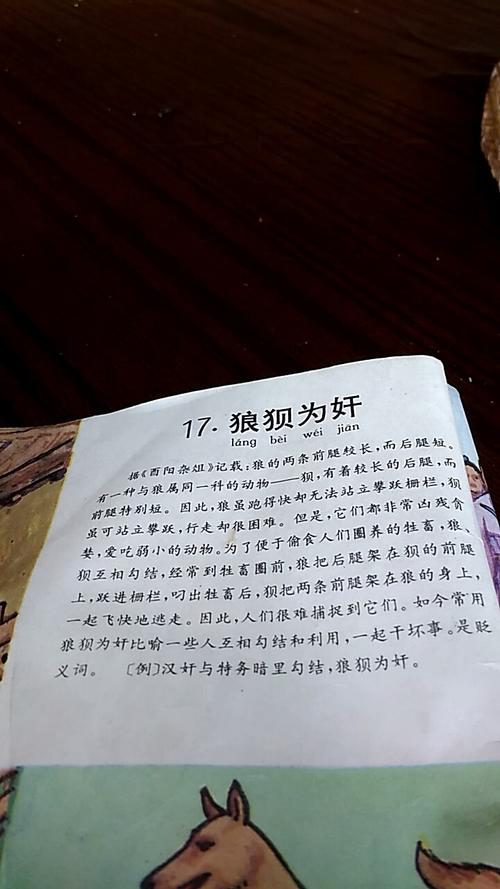 17. 狼狈为奸
láng bèi wéi jiān
据《酉阳杂俎》记载：狼的两条前腿较长，而后腿短。
有一种与狼属同一科的动物——狈，有着较长的后腿，而
前腿特别短。因此，狼虽跑得快却无法站立攀跃栅栏，狈
虽可站立攀跃，行走却很困难。但是，它们都非常凶残贪
婪，爱吃弱小的动物。为了便于偷食人们圈养的牲畜，狼、
狈互相勾结，经常到牲畜圈前，狼把后腿架在狈的前腿
上，跃进栅栏，叼出牲畜后，狈把两条前腿架在狼的身上，
一起飞快地逃走。因此，人们很难捕捉到它们。如今常用
狼狈为奸比喻一些人互相勾结和利用，一起干坏事。是贬
义词。 〔例〕汉奸与特务暗里勾结，狼狈为奸。